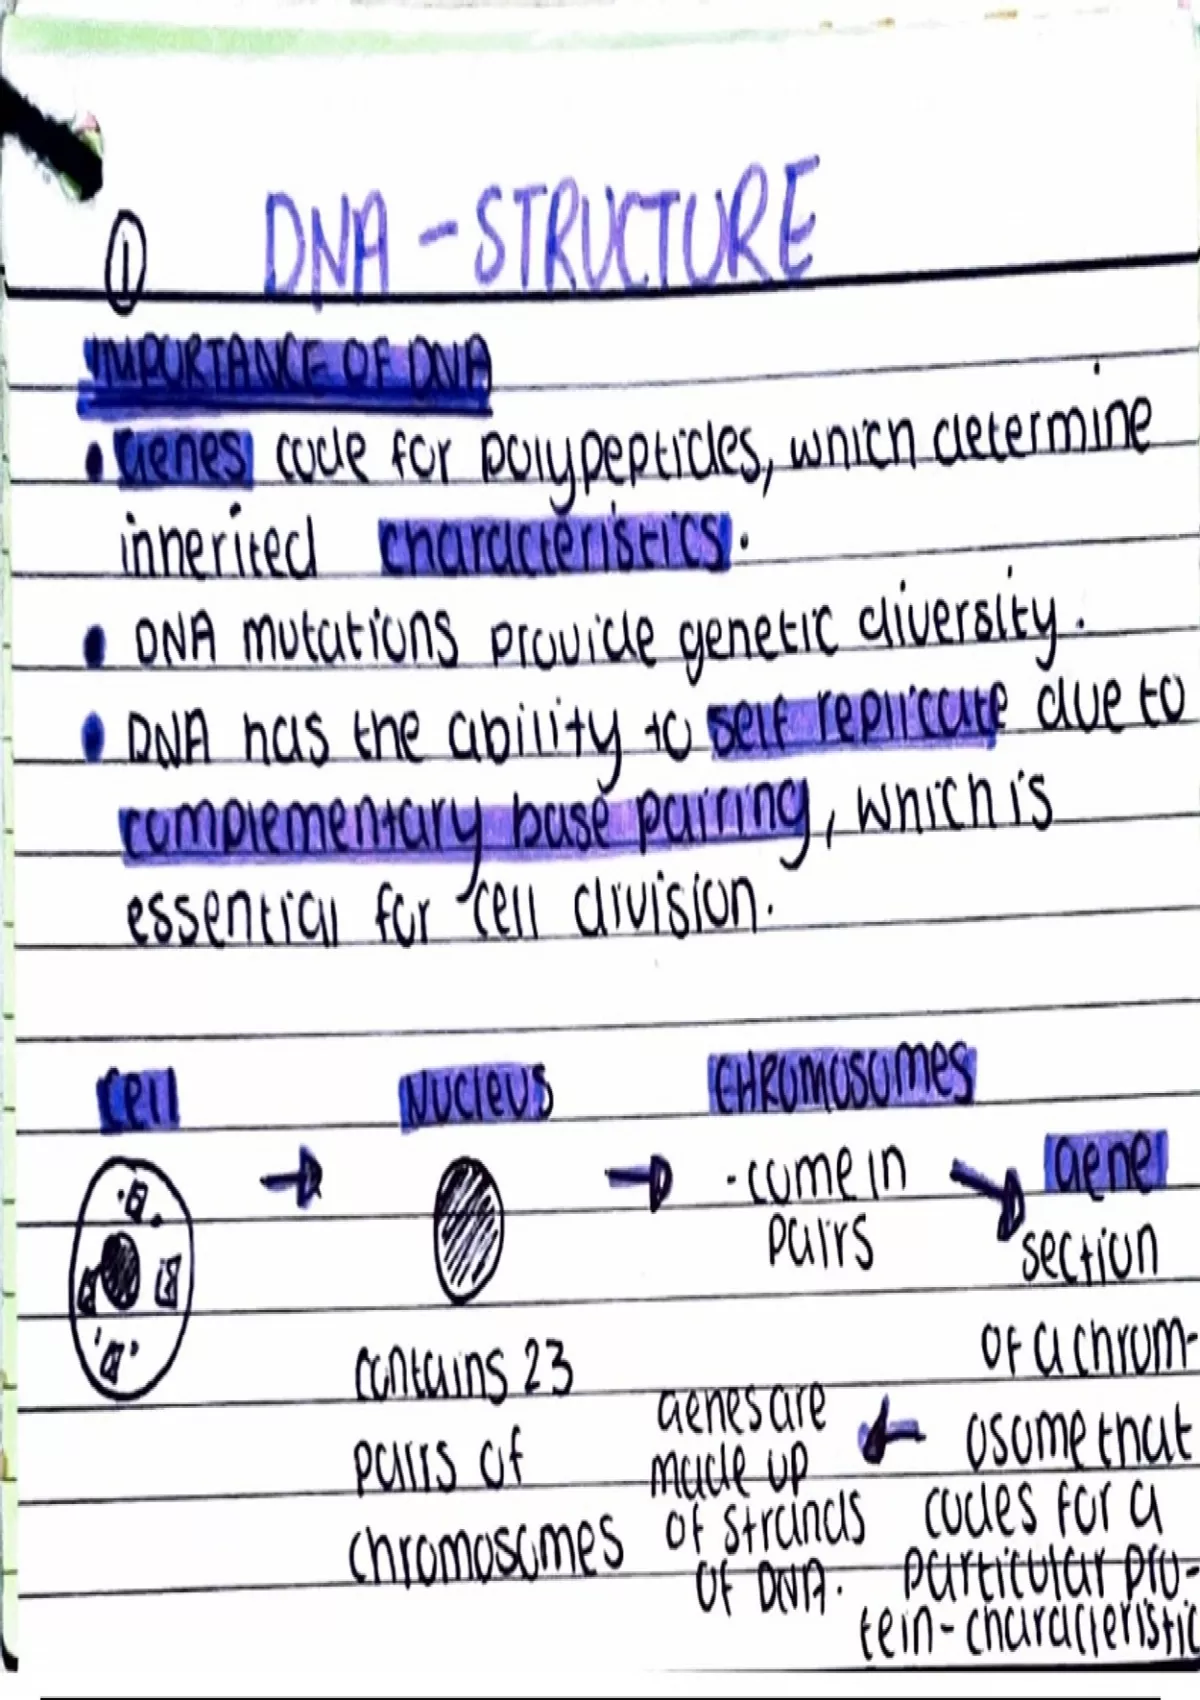 ① DNA - STRUCTURE
IMPORTANCE OF DNA
• Genes code for polypeptides, which determine
inherited characteristics.
• DNA mutations provide genetic diversity.
• DNA has the ability to self replicate due to
complementary base pairing, which is
essential for cell division.
Cell → Nucleus → CHROMOSOMES
- come in
pairs
→ Gene
section
of a chrom-
osome that
codes for a
particular pro-
tein - characteristic
contains 23
pairs of
chromosomes
← Genes are
made up
of strands
of DNA.